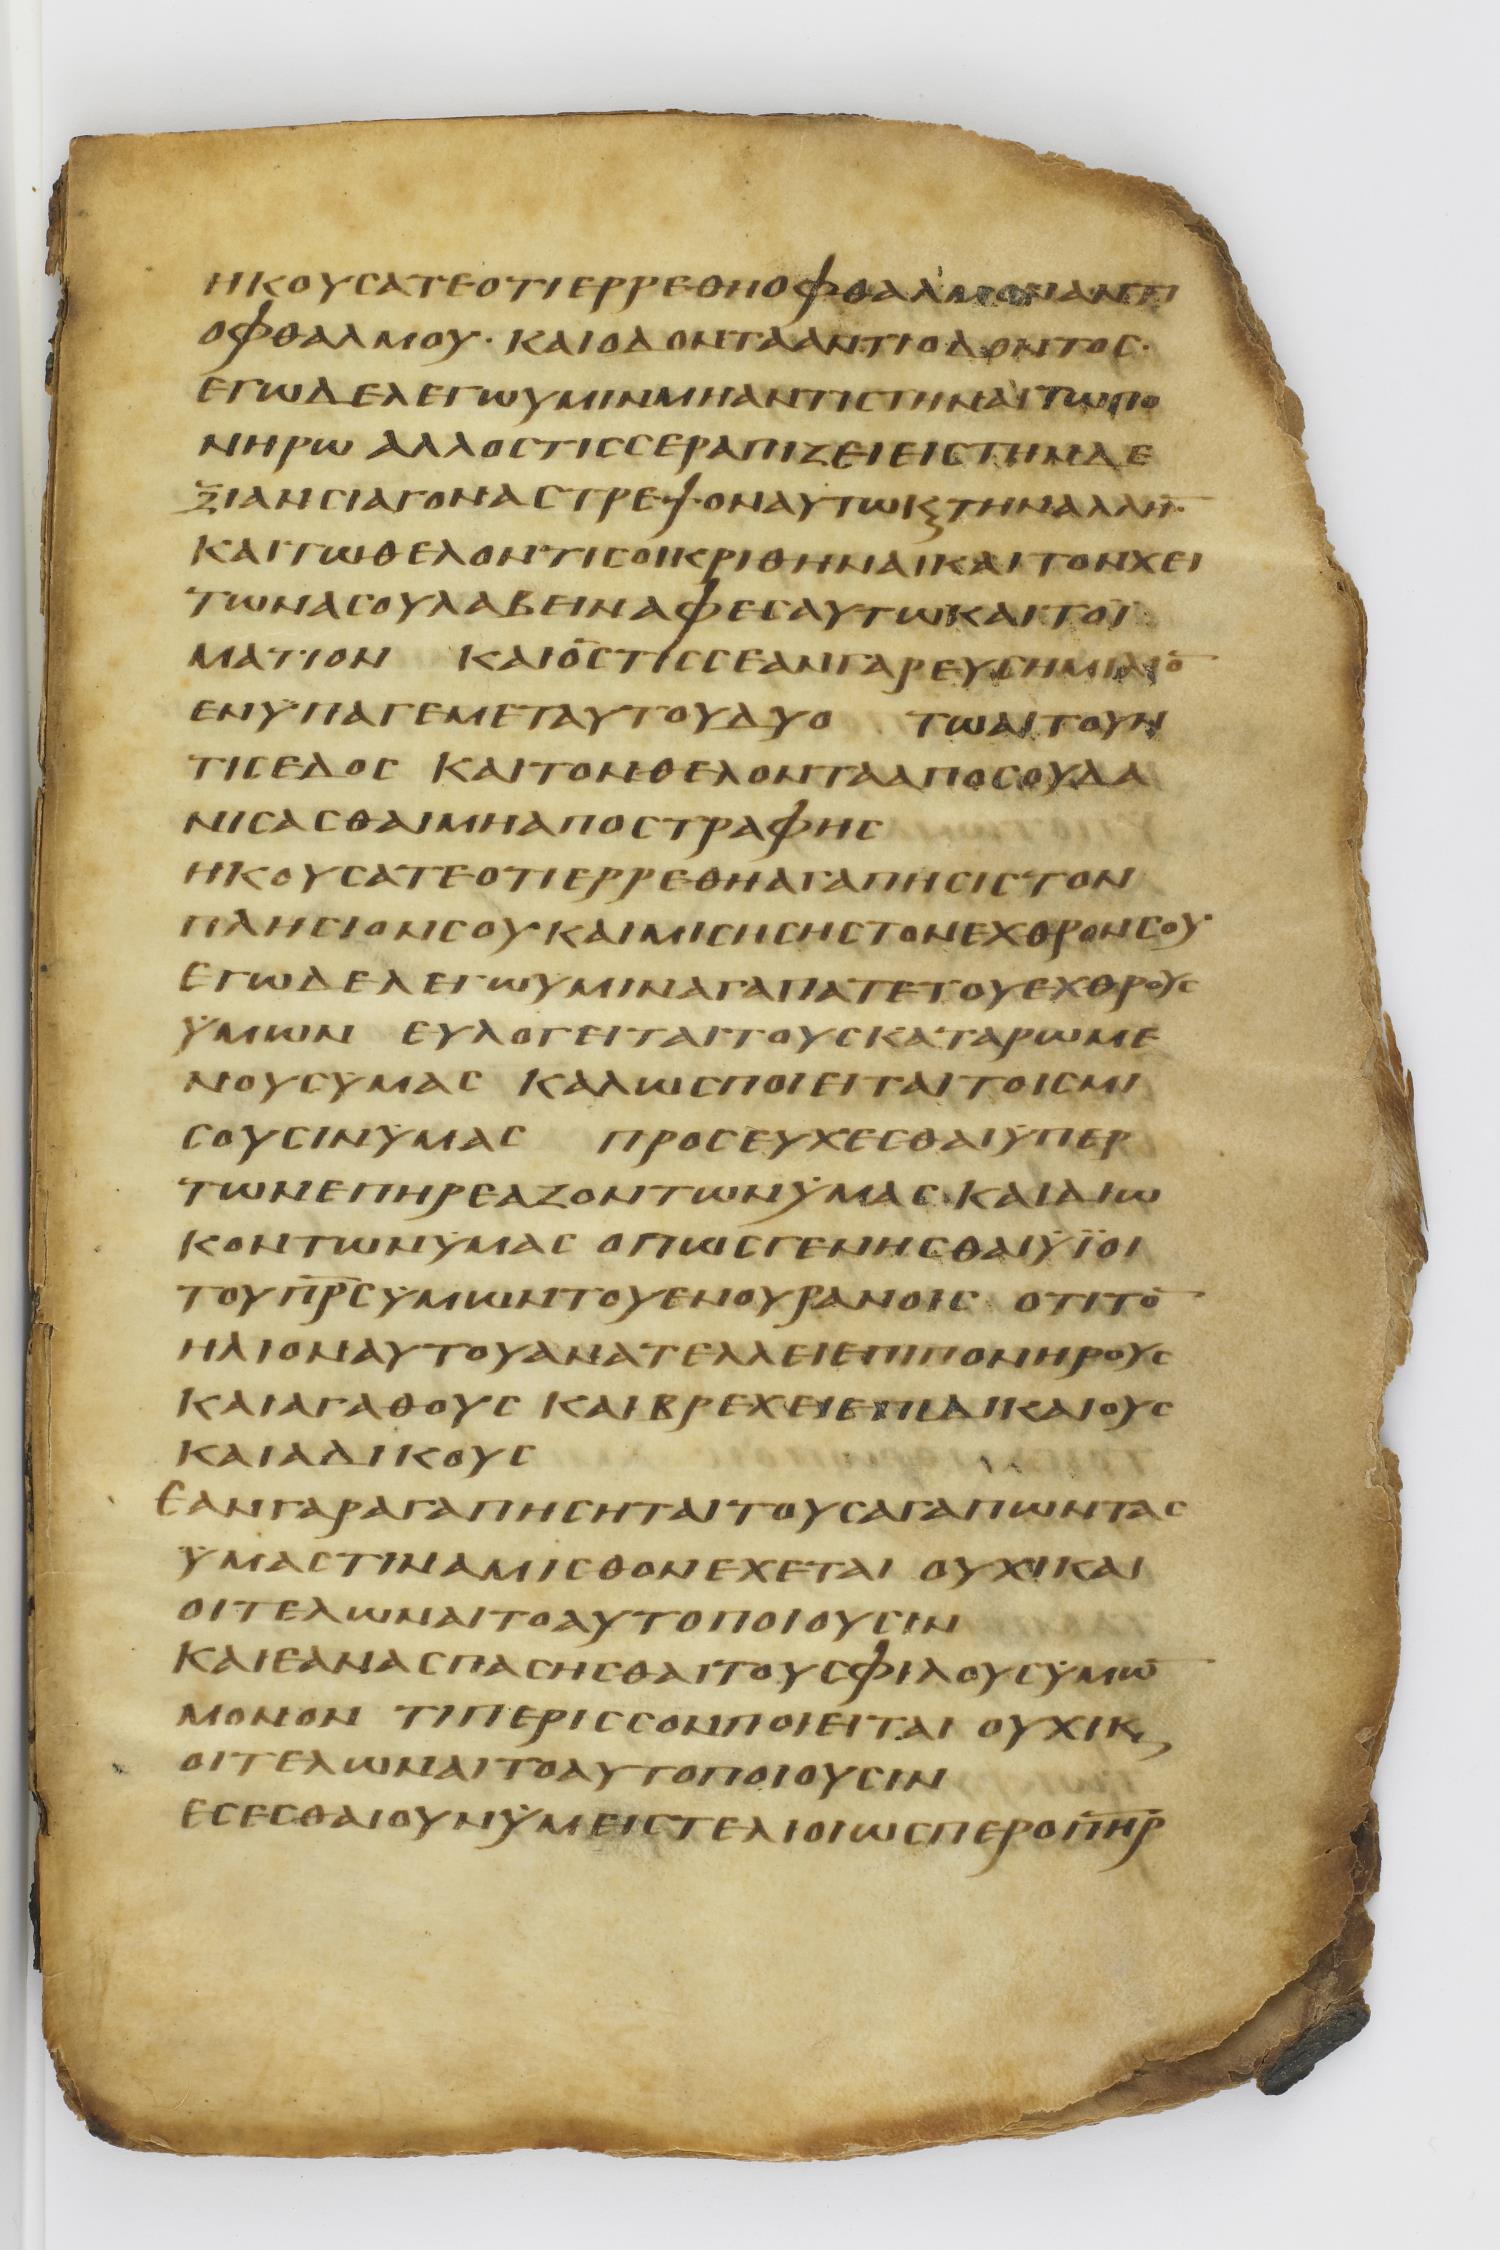 ΗΚΟΥCΑΤΕΟΤΙΕΡΡΕΘΗΟΦΘΑΛΜΟΝΑΝΤΙ
ΟΦΘΑΛΜΟΥ· ΚΑΙΟΔΟΝΤΑΑΝΤΙΟΔΟΝΤΟC·
ΕΓΩΔΕΛΕΓΩΥΜΙΝΜΗΑΝΤΙCΤΗΝΑΙΤΩΠΟ
ΝΗΡΩ ΑΛΛΟCΤΙCCΕΡΑΠΙΖΕΙΕΙCΤΗΝΔΕ
ΞΙΑΝCΙΑΓΟΝΑCΤΡΕΨΟΝΑΥΤΩΚ̣ΤΗΝΑΛΛΗ̅·
ΚΑΙΤΩΘΕΛΟΝΤΙCΟΙΚΡΙΘΗΝΑΙΚΑΙΤΟΝΧΕΙ
ΤΩΝΑCΟΥΛΑΒΕΙΝΑΦΕCΑΥΤΩΚΑΙΤΟΪ
ΜΑΤΙΟΝ ΚΑΙΟCΤΙCCΕΑΝΓΑΡΕΥCΗΜΙΛΙΟ̅
ΕΝΫΠΑΓΕΜΕΤΑΥΤΟΥΔΥΟ ΤΩΑΙΤΟΥΝ
ΤΙCΕΔΟC ΚΑΙΤΟΝΘΕΛΟΝΤΑΑΠΟCΟΥΔΑ
ΝΙCΑCΘΑΙΜΗΑΠΟCΤΡΑΦΗC
ΗΚΟΥCΑΤΕΟΤΙΕΡΡΕΘΗΑΓΑΠΗCΙCΤΟΝ
ΠΛΗCΙΟΝCΟΥΚΑΙΜΙCΗCΗCΤΟΝΕΧΘΡΟΝCΟΥ
ΕΓΩΔΕΛΕΓΩΫΜΙΝΑΓΑΠΑΤΕΤΟΥΕΧΘΡΟΥC
ΫΜΩΝ ΕΥΛΟΓΕΙΤΑΙΤΟΥCΚΑΤΑΡΩΜΕ
ΝΟΥCΫΜΑC ΚΑΛΩCΠΟΙΕΙΤΑΙΤΟΙCΜΙ
CΟΥCΙΝΫΜΑC ΠΡΟCΕΥΧΕCΘΑΙΫΠΕΡ
ΤΩΝΕΠΗΡΕΑΖΟΝΤΩΝΫΜΑC ΚΑΙΔΙΩ
ΚΟΝΤΩΝΫΜΑC ΟΠΩCΓΕΝΗCΘΑΙΫΪΟΙ
ΤΟΥΠ̅Ρ̅C̅ΫΜΩΝΤΟΥΕΝΟΥΡΑΝΟΙC ΟΤΙΤΟ̅
ΗΛΙΟΝΑΥΤΟΥΑΝΑΤΕΛΛΕΙΕΠΙΠΟΝΗΡΟΥC
ΚΑΙΑΓΑΘΟΥC ΚΑΙΒΡΕΧΕΙΕΠΙΔΙΚΑΙΟΥC
ΚΑΙΑΔΙΚΟΥC
ΕΑΝΓΑΡΑΓΑΠΗCΗΤΑΙΤΟΥCΑΓΑΠΩΝΤΑC
ΫΜΑCΤΙΝΑΜΙCΘΟΝΕΧΕΤΑΙ ΟΥΧΙΚΑΙ
ΟΙΤΕΛΩΝΑΙΤΟΑΥΤΟΠΟΙΟΥCΙΝ
ΚΑΙΕΑΝΑCΠΑCΗCΘΑΙΤΟΥCΦΙΛΟΥCΫΜΩ̅
ΜΟΝΟΝ ΤΙΠΕΡΙCCΟΝΠΟΙΕΙΤΑΙ ΟΥΧΙΚ̣
ΟΙΤΕΛΩΝΑΙΤΟΑΥΤΟΠΟΙΟΥCΙΝ
ΕCΕCΘΑΙΟΥΝΫΜΕΙCΤΕΛΙΟΙΩCΠΕΡΟΠ̅Η̅Ρ̅